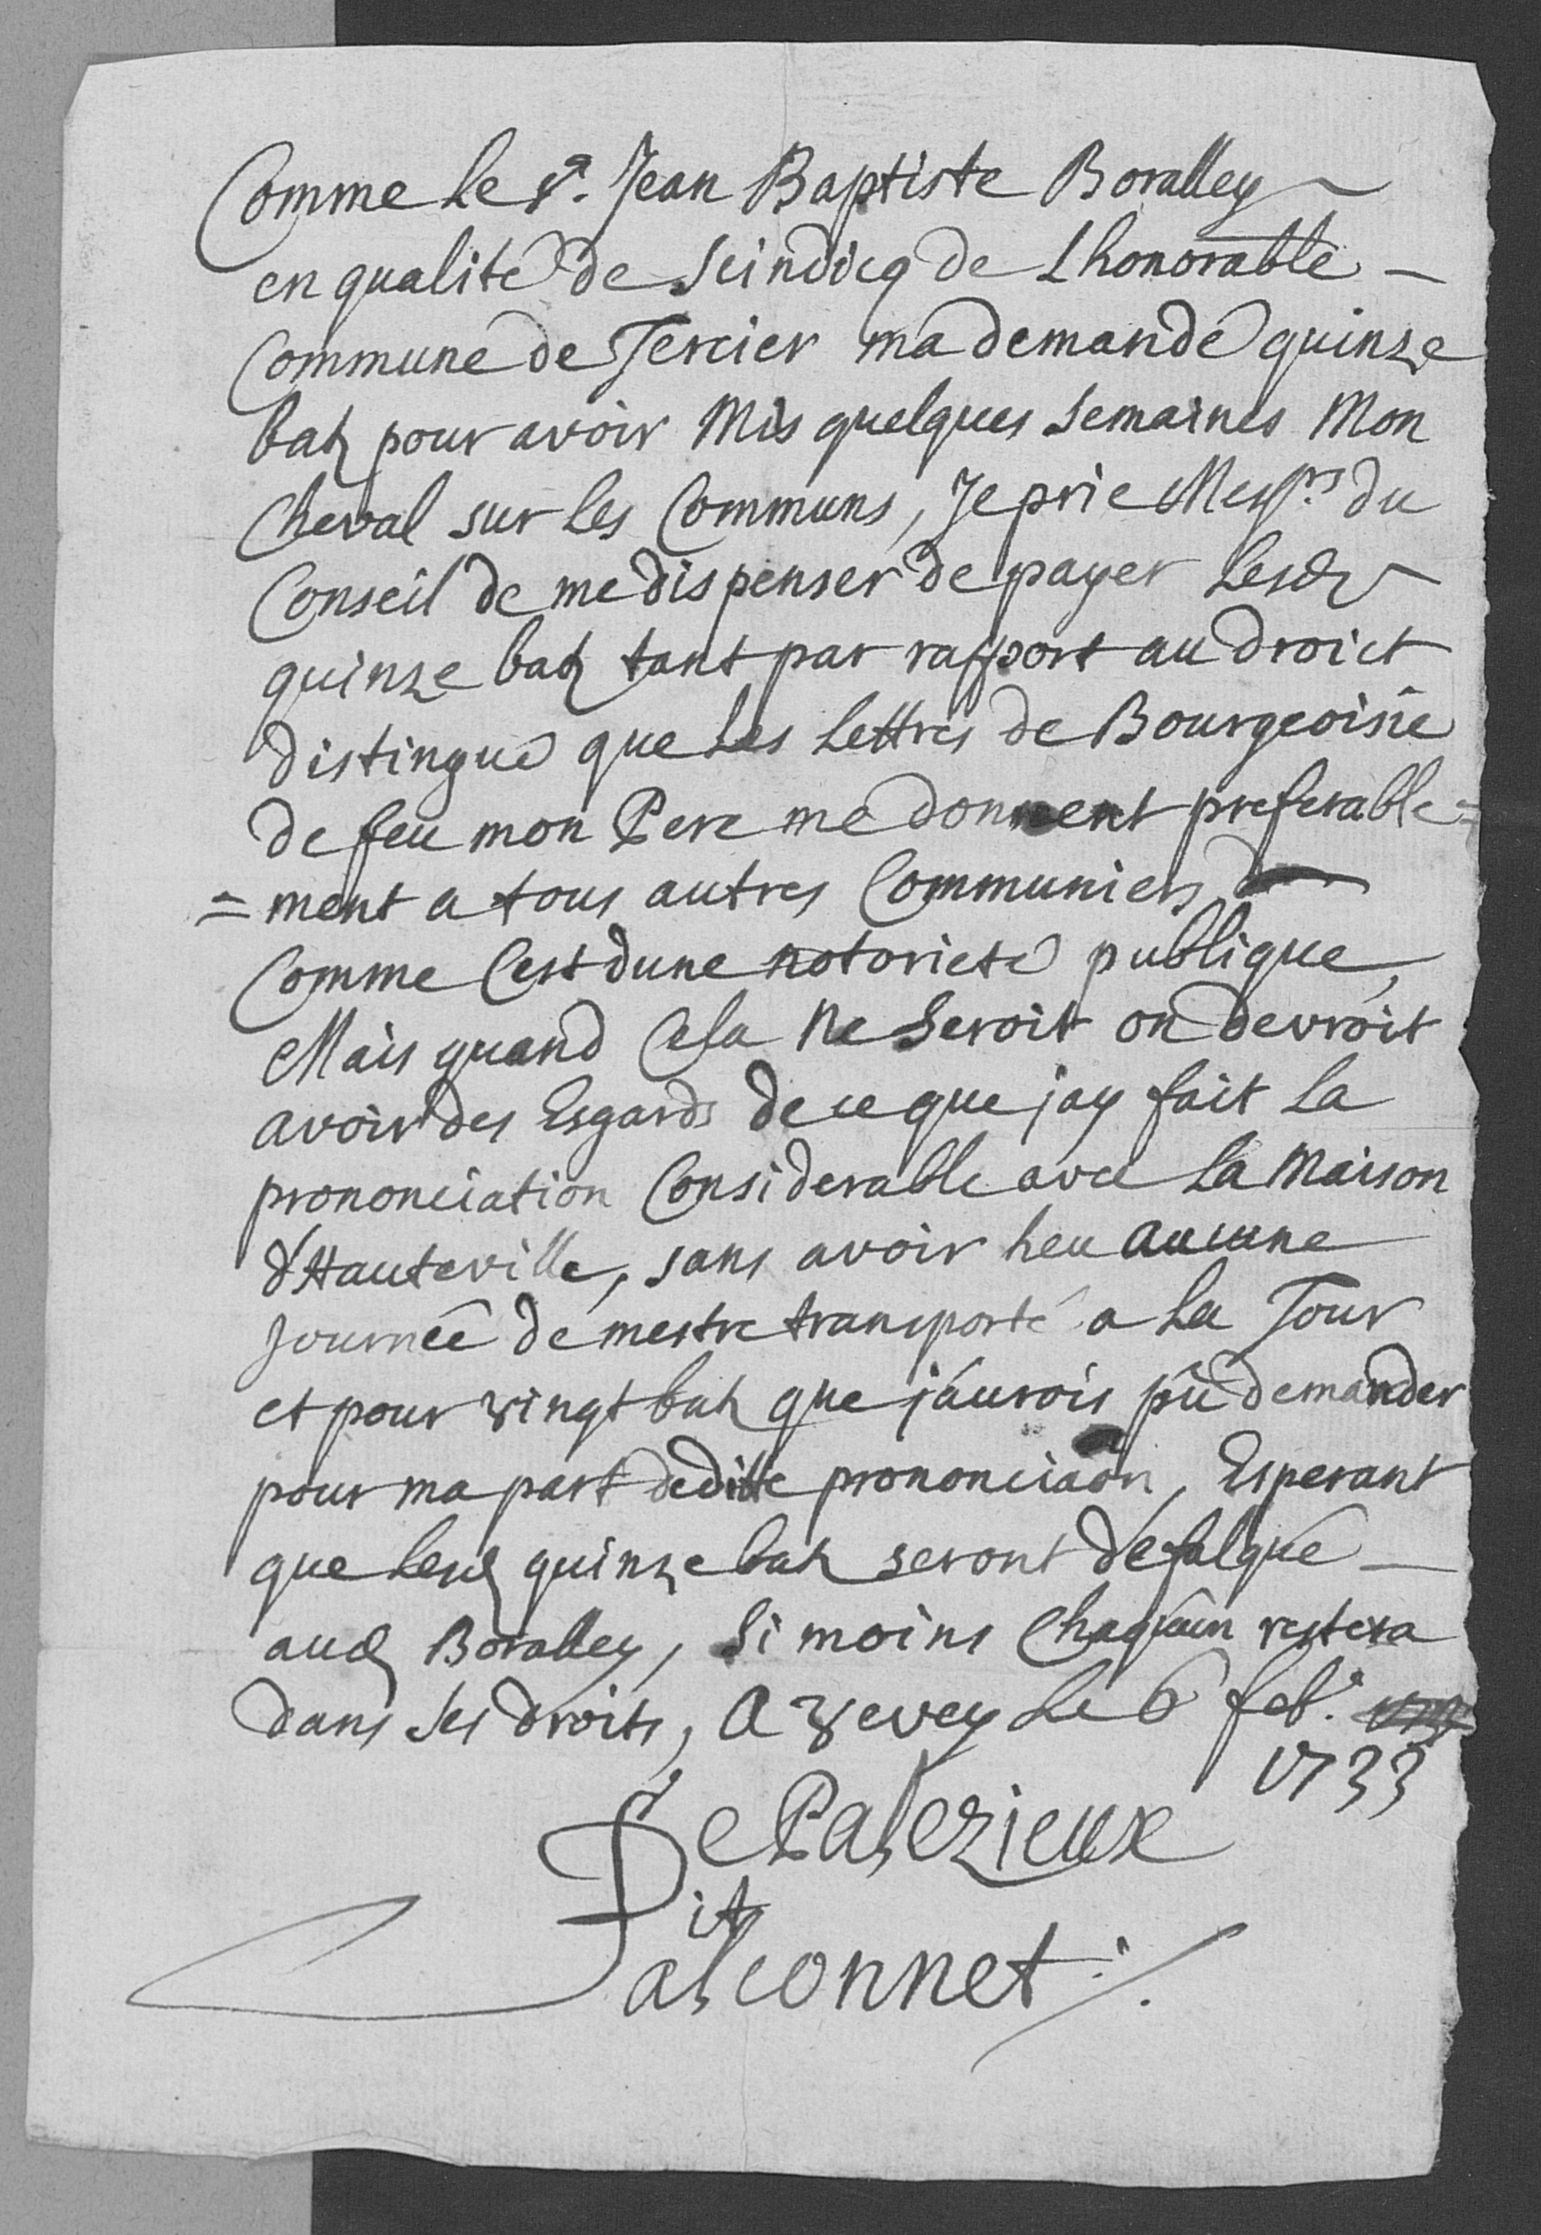 Comme le Sr. Jean Baptiste Boralley
en qualité de Scindicq de Lhonorable
Commune de Tercier ma demandé quinze
batz pour avoir Mis quelques Semaines Mon
Cheval sur les Communs, Je prie Messrs du
Conseil de me dispenser de payer lesd
quinze batz tant par rapport au droict
distingué que Les Lettres de Bourgeoisie
de feu mon Pere me donnent preferable=
=ment a tous autres Communiers
Comme Cest dune notorieté publique,
Mais quand Cela Ne Seroit on devroit
avoir des Esgards de ce que jay fait La
prononciation Considerable avec La Maison
d'Hauteville, sans avoir heu aucune
Journée de mestre transporté a La Tour
et pour vingt batz que j'aurois pû demander
pour ma part de ditte prononciaon, Esperant
que lesd quinze batz seront défalqué
aud Boralley, Si moins Chaqu'un restera
dans Ses droits, A Vevey Le 6 feb.
1733
De Palezieux
Dit
Falconnet